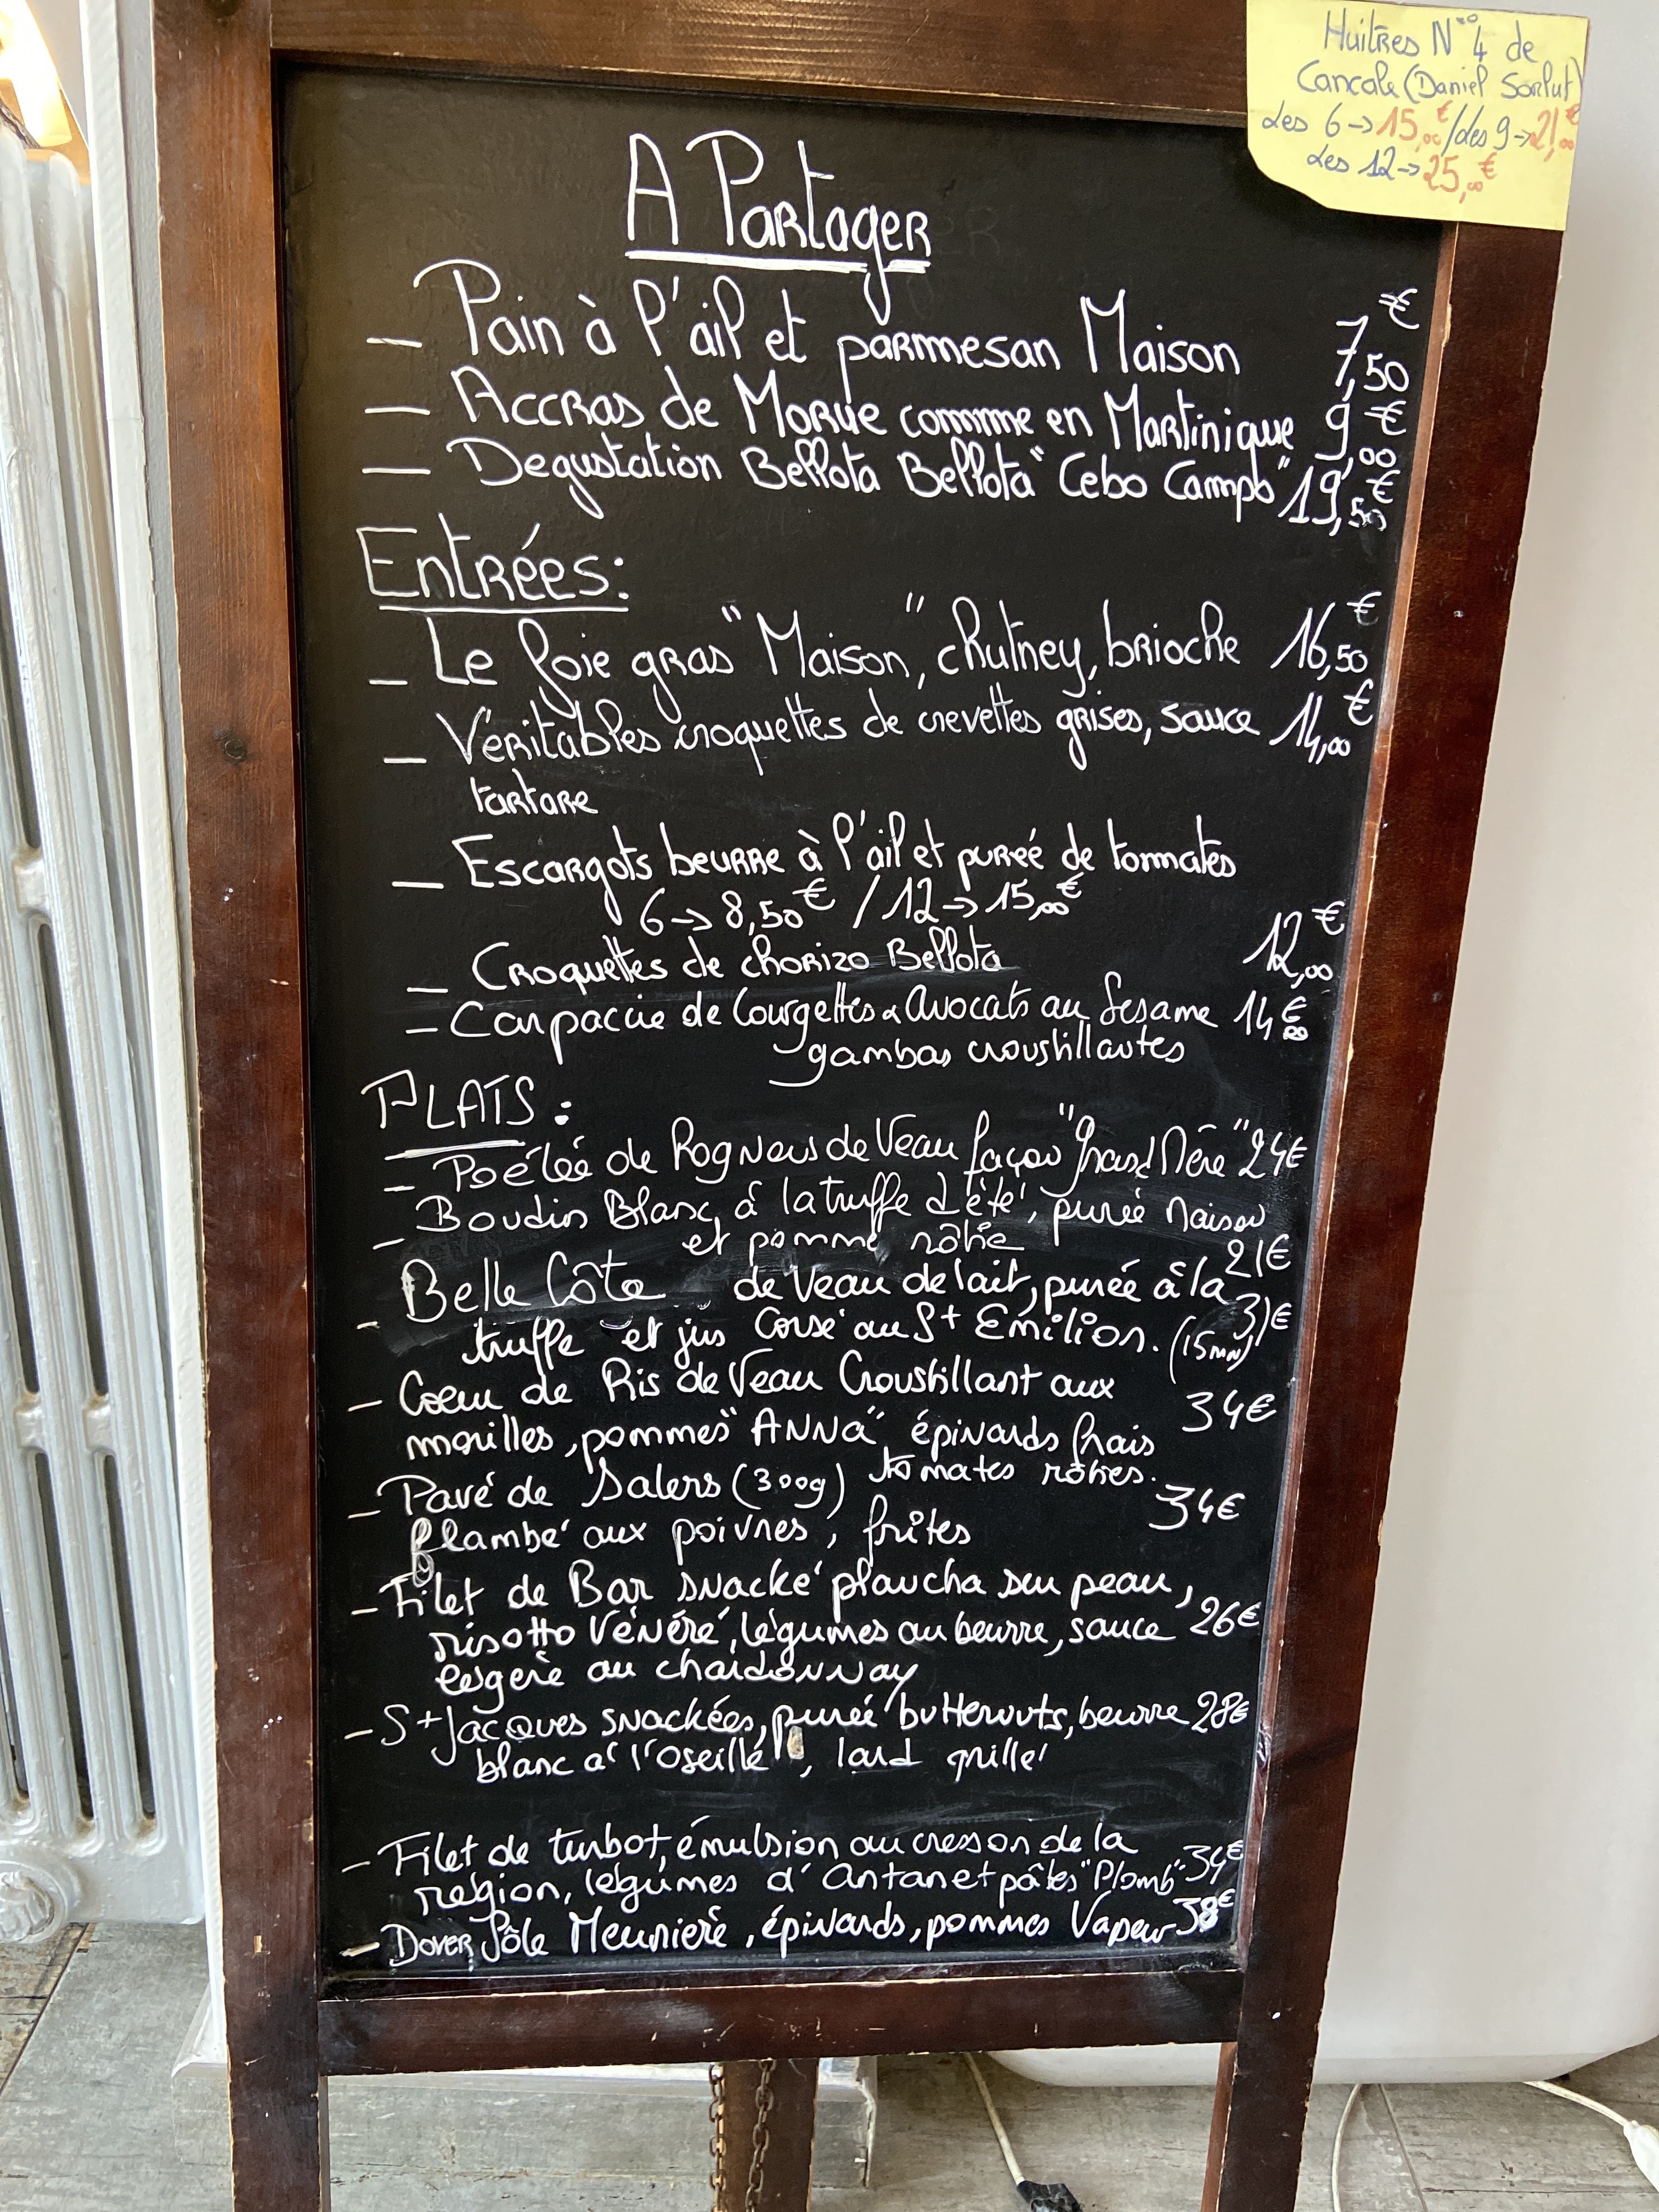 Huîtres N°4 de
Cancale (Daniel Sorlut)
Les 6 → 15,00€ / les 9 → 21,00€
Les 12 → 25,00€
A Partager
— Pain à l'ail et parmesan Maison 7,50€
— Accras de Morue comme en Martinique 9,00€
— Degustation Bellota Bellota "Cebo Campo" 19,50€
Entrées:
— Le foie gras "Maison", chutney, brioche 16,50€
— Véritables croquettes de crevettes grises, sauce 14,00€
tartare
— Escargots beurre à l'ail et purée de tomates
6 → 8,50€ / 12 → 15,00€
— Croquettes de chorizo Bellota 12,00€
— Carpaccie de Courgettes & Avocats au Sesame 14€00
gambas croustillantes
PLATS:
— Poélée de Rognons de Veau façon "Grand Mère" 24€
— Boudin Blanc, à la truffe d'été, purée Maison
et pomme rôtie 21€
— Belle Côte de Veau de lait, purée à la
truffe et jus Corsé au St Emilion. (15mn) 31€
— Coeur de Ris de Veau Croustillant aux 34€
morilles, pommes "ANNA" épinards frais
tomates rôties.
— Pavé de Salers (300g) 34€
flambé aux poivres, frîtes
— Filet de Bar snacké plancha sur peau,
risotto Vénéré, légumes au beurre, sauce 26€
légère au chardonnay
— St Jacques snackées, purée butternuts, beurre 28€
blanc à l'oseille, lard grillé
— Filet de turbot, émulsion au cresson de la
région, légumes d'Antan et pâtes "Plomb" 34€
— Dover Sôle Meunière, épinards, pommes Vapeur 38€